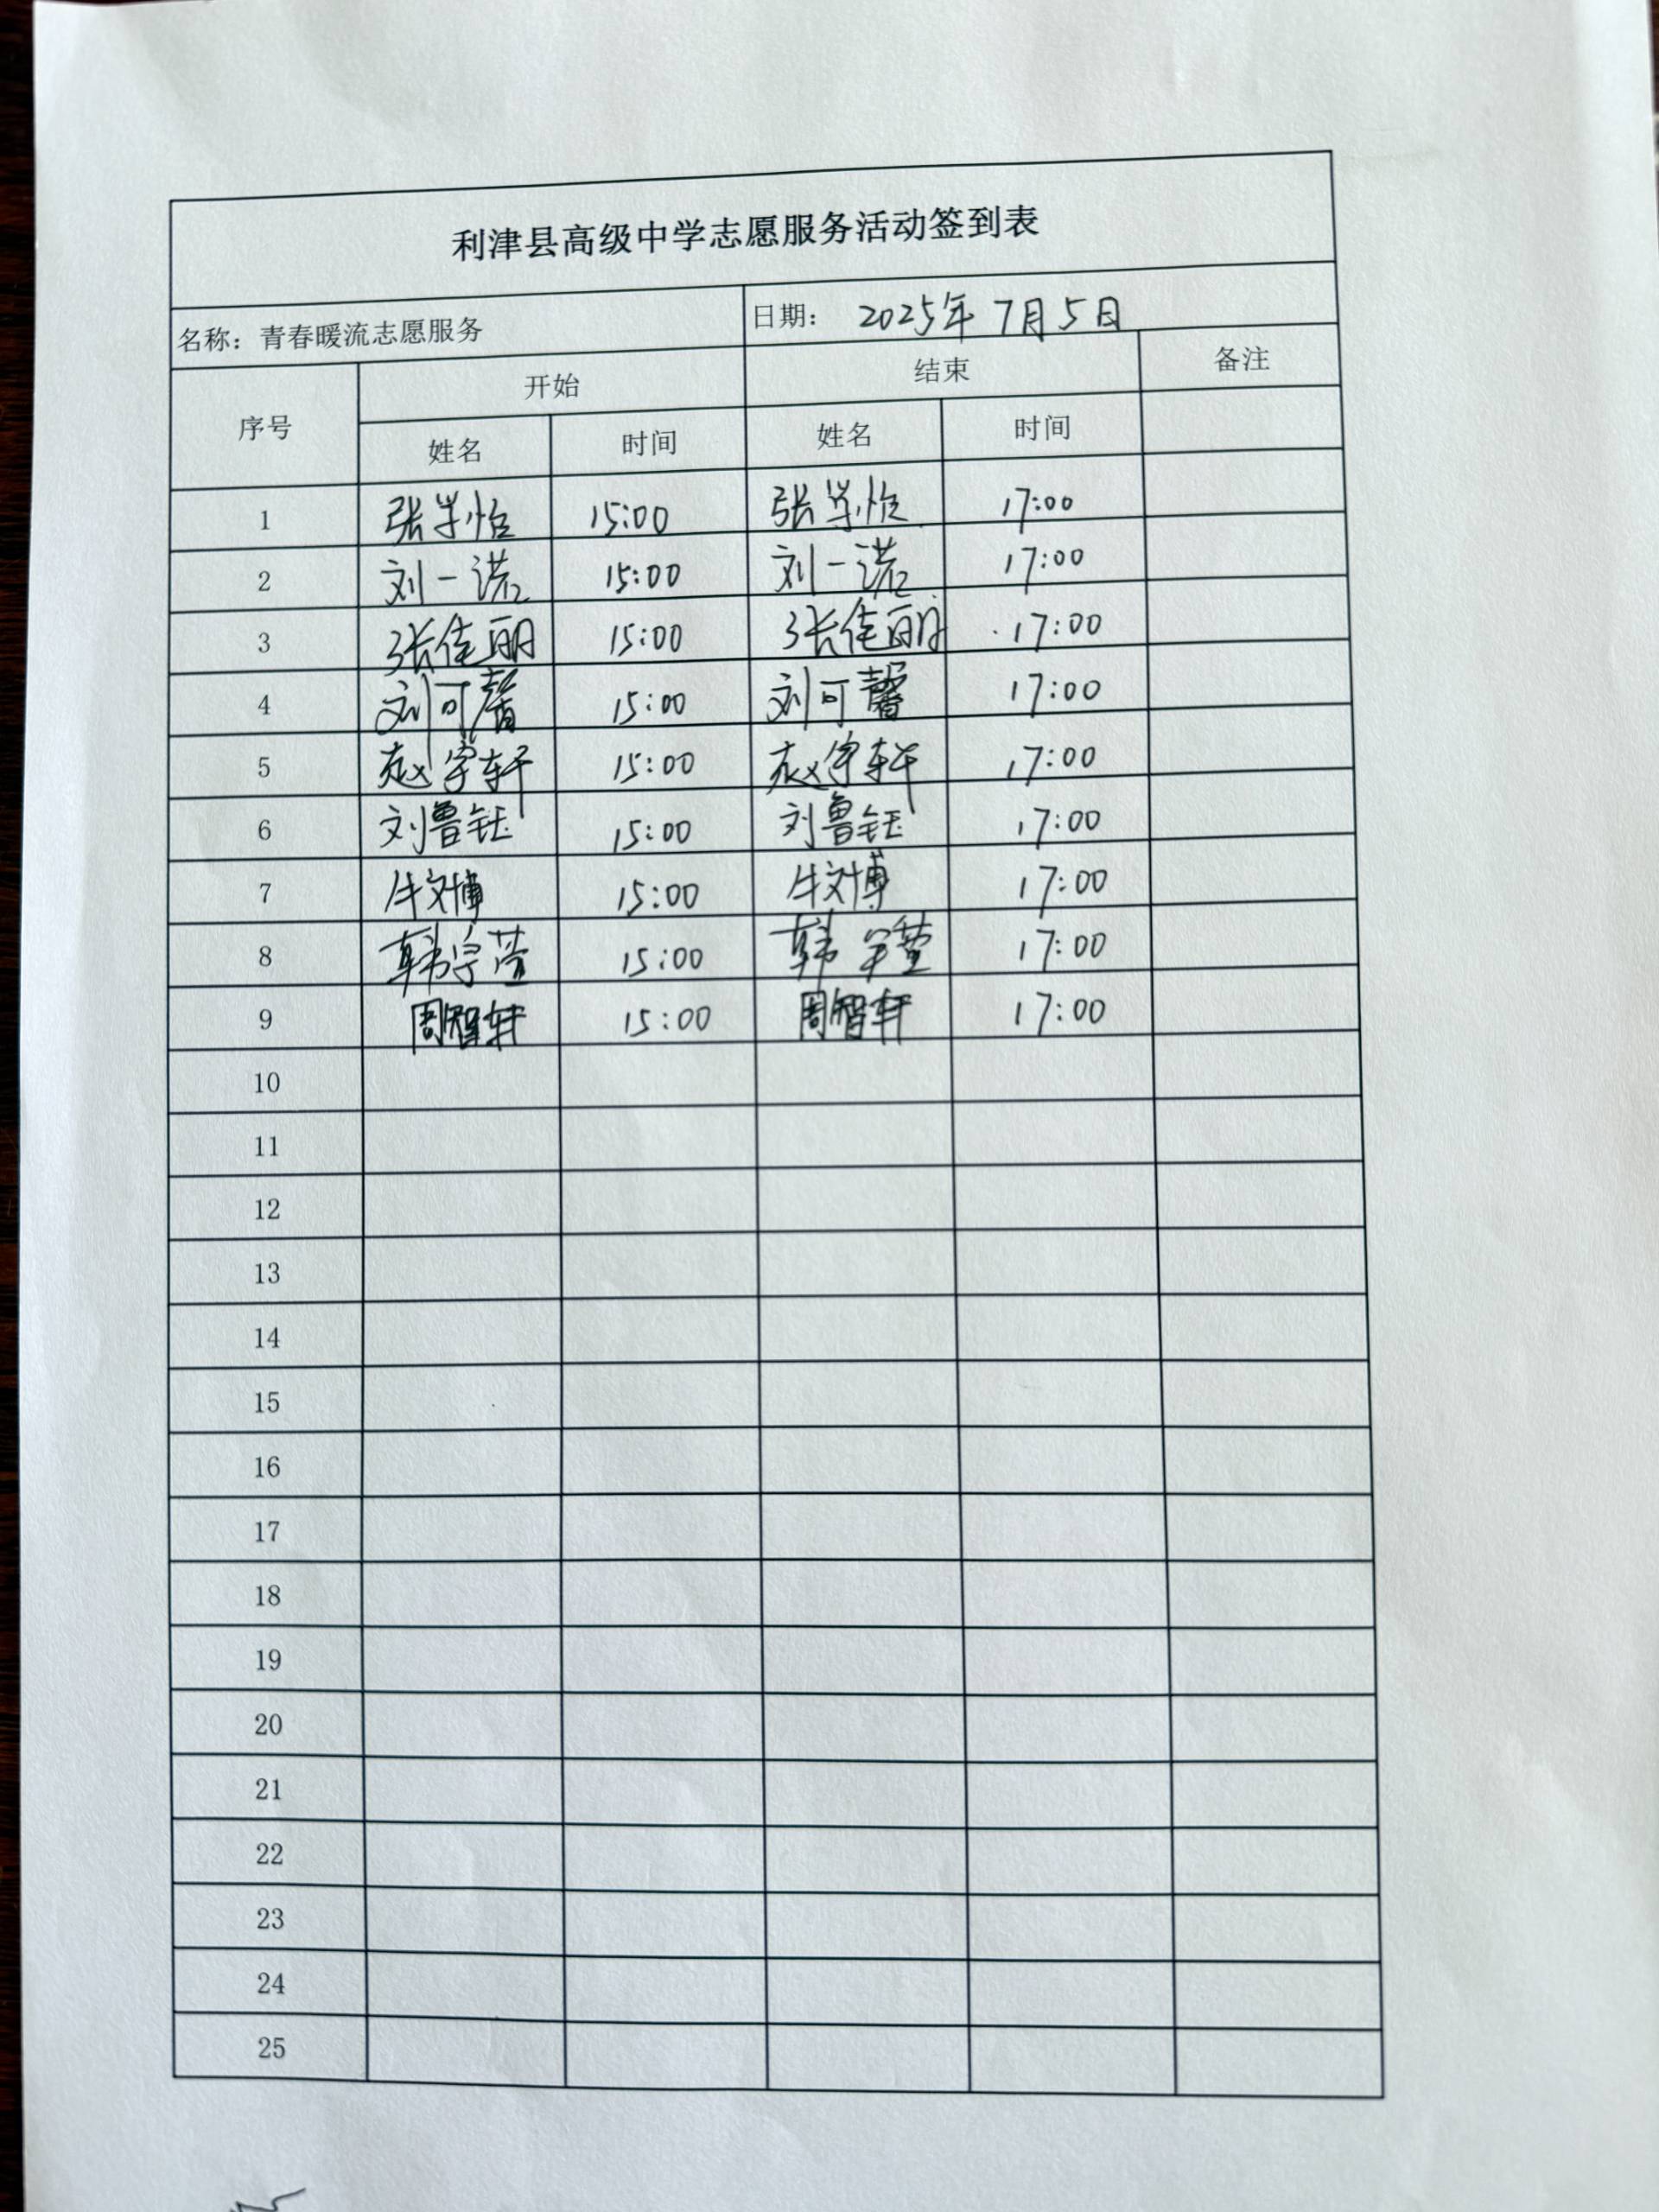 利津县高级中学志愿服务活动签到表
名称：青春暖流志愿服务 日期： 2025年7月5日
序号 开始 结束 备注
姓名 时间 姓名 时间
1 张学怡 15:00 张学怡 17:00
2 刘一诺 15:00 刘一诺 17:00
3 张佳丽 15:00 张佳丽 17:00
4 刘可馨 15:00 刘可馨 17:00
5 赵宇轩 15:00 赵宇轩 17:00
6 刘鲁钰 15:00 刘鲁钰 17:00
7 牛文博 15:00 牛文博 17:00
8 韩宇萱 15:00 韩宇萱 17:00
9 周智轩 15:00 周智轩 17:00
10
11
12
13
14
15
16
17
18
19
20
21
22
23
24
25